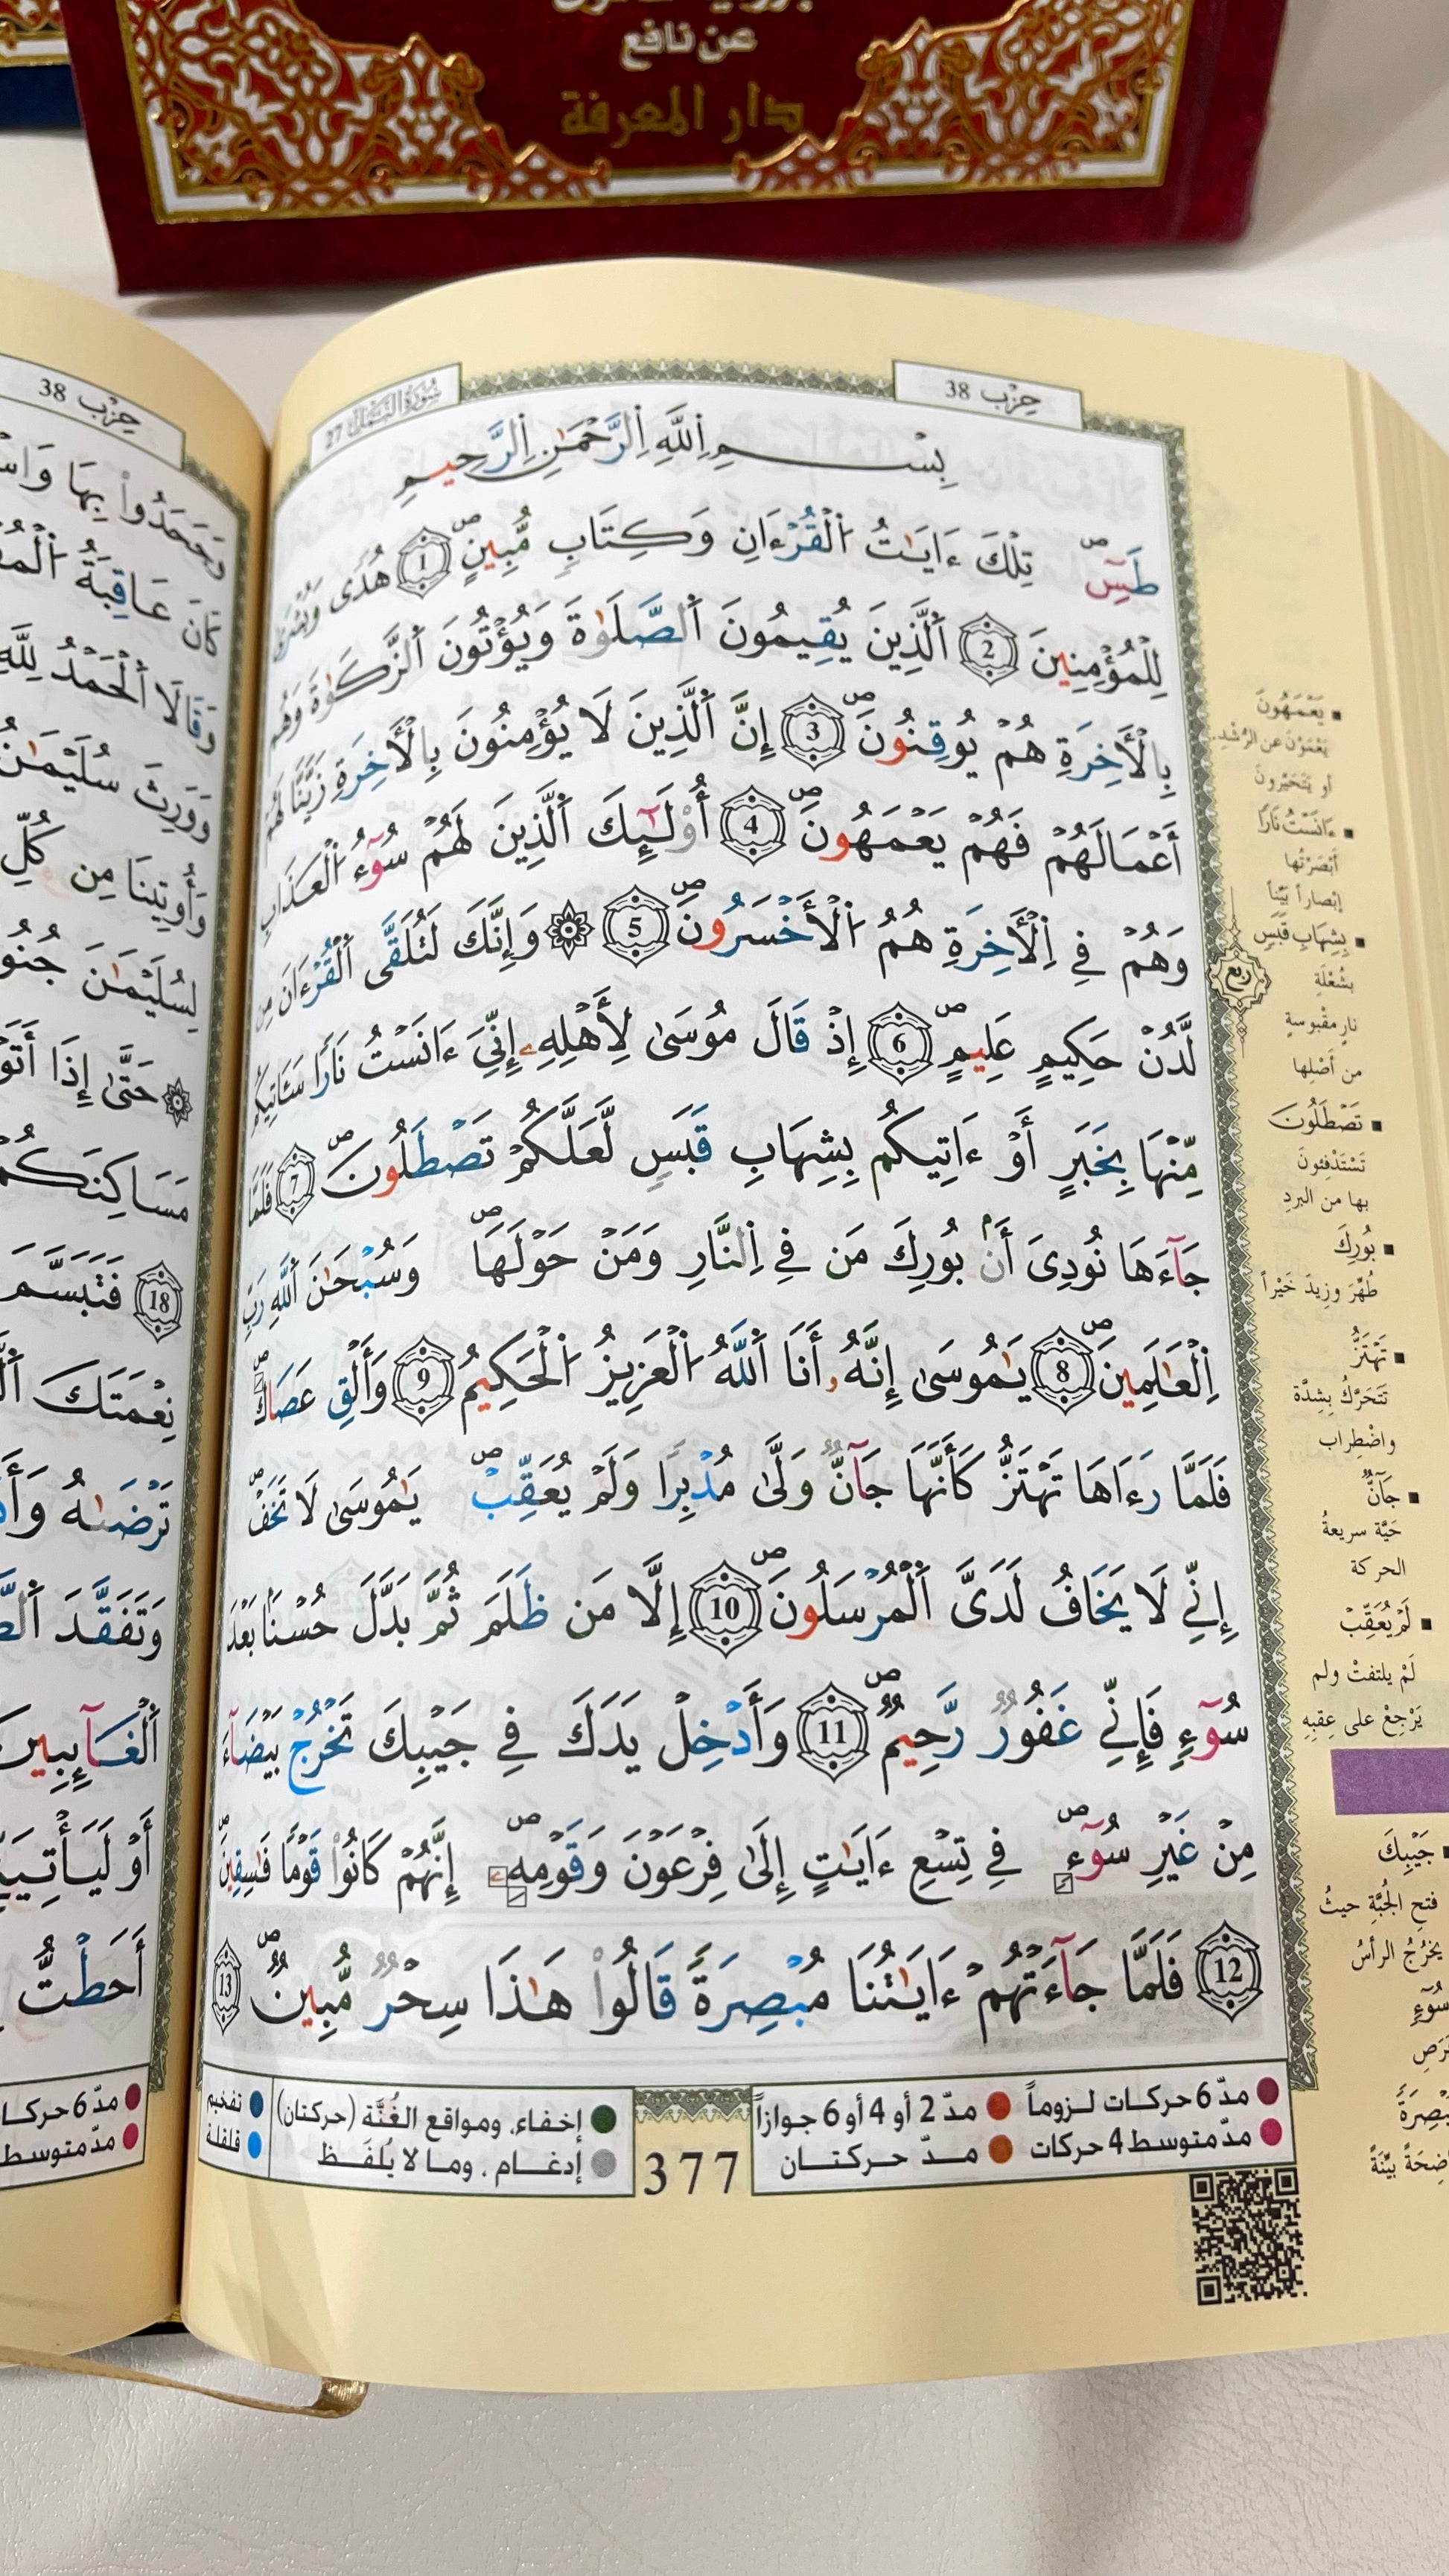 عن نافع
دار المعرفة
حِزْب 38
سُورَةُ النَّمْلِ 27
حِزْب 38
بِسْمِ اِللَّهِ اِلرَّحْمَٰنِ اِلرَّحِيمِ
طَسِٓۖ تِلْكَ ءَايَٰتُ اُ۬لْقُرْءَانِ وَكِتَابٖ مُّبِينٍۖ 1 هُدٗى وَبُشْر۪ىٰ
لِلْمُؤْمِنِينَ 2 اَ۬لَّذِينَ يُقِيمُونَ اَ۬لصَّلَوٰةَ وَيُؤْتُونَ اَ۬لزَّكَوٰةَ وَهُم
بِالْأَخِرَةِ هُمْ يُوقِنُونَۖ 3 إِنَّ اَ۬لَّذِينَ لَا يُؤْمِنُونَ بِالْأَخِرَةِ زَيَّنَّا لَهُمْ
أَعْمَالَهُمْ فَهُمْ يَعْمَهُونَۖ 4 أُوْلَٰٓئِكَ اَ۬لَّذِينَ لَهُمْ سُوٓءُ اُ۬لْعَذَابِ
وَهُمْ فِي اِ۬لْأَخِرَةِ هُمُ اُ۬لْأَخْسَرُونَۖ 5 ۞ وَإِنَّكَ لَتُلَقَّى اَ۬لْقُرْءَانَ مِن
لَّدُنْ حَكِيمٍ عَلِيمٍۖ 6 إِذْ قَالَ مُوسَىٰ لِأَهْلِهِۦ إِنِّيَ ءَانَسْتُ نَارٗا سَـَٔاتِيكُم
مِّنْهَا بِخَبَرٍ أَوْ ءَاتِيكُم بِشِهَابِ قَبَسٖ لَّعَلَّكُمْ تَصْطَلُونَۖ 7 فَلَمَّا
جَآءَهَا نُودِيَ أَنۢ بُورِكَ مَن فِي اِ۬لنَّارِ وَمَنْ حَوْلَهَاۖ وَسُبْحَٰنَ اَ۬للَّهِ رَبِّ
اِ۬لْعَٰلَمِينَۖ 8 يَٰمُوسَىٰ إِنَّهُۥ أَنَا اَ۬للَّهُ اُ۬لْعَزِيزُ اُ۬لْحَكِيمُ 9 وَأَلْقِ عَصَاكَۖ
فَلَمَّا رَءَاهَا تَهْتَزُّ كَأَنَّهَا جَآنّٞ وَلَّىٰ مُدْبِرٗا وَلَمْ يُعَقِّبْۖ يَٰمُوسَىٰ لَا تَخَفْۖ
إِنِّي لَا يَخَافُ لَدَيَّ اَ۬لْمُرْسَلُونَۖ 10 إِلَّا مَن ظَلَمَ ثُمَّ بَدَّلَ حُسْنَۢا بَعْدَ
سُوٓءٖ فَإِنِّي غَفُورٞ رَّحِيمٞۖ 11 وَأَدْخِلْ يَدَكَ فِي جَيْبِكَ تَخْرُجْ بَيْضَآءَ
مِنْ غَيْرِ سُوٓءٖۖ فِي تِسْعِ ءَايَٰتٍ إِلَىٰ فِرْعَوْنَ وَقَوْمِهِۦۖ إِنَّهُمْ كَانُوا۟ قَوْمٗا فَٰسِقِينَۖ
12 فَلَمَّا جَآءَتْهُمْ ءَايَٰتُنَا مُبْصِرَةٗ قَالُوا۟ هَٰذَا سِحْرٞ مُّبِينٞۖ 13
▪ يَعْمَهُونَ
يَعْمَوْنَ عن الرُّشْدِ.
أو يَتَحَيَّرونَ
▪ ءَانَسْتُ نَارًا
أَبْصَرْتُها
إبْصاراً بَيِّناً
▪ بِشِهَابِ قَبَسٍ
بشُعْلَةِ
نارٍ مقْبوسةٍ
من أَصْلِها
رُبع
▪ تَصْطَلُونَ
تَسْتَدْفِئونَ
بها من البردِ
▪ بُورِكَ
طُهِّرَ وزِيدَ خَيْراً
▪ تَهْتَزُّ
تَتَحَرَّكُ بِشِدَّة
واضْطِراب
▪ جَآنٌّ
حَيَّة سريعةُ
الحركة
▪ لَمْ يُعَقِّبْ
لَمْ يلتفتْ ولم
يَرْجِعْ على عقِبِهِ
▪ جَيْبِكَ
فتحِ الجُبَّةِ حيثُ
يخرُجُ الرأسُ
سُوٓءٍ
مدّ 6 حركات لزوماً
مدّ 2 أو 4 أو 6 جوازاً
مدّ متوسط 4 حركات
مدّ حركتان
377
إخفاء، ومواقع الغُنَّة (حركتان)
إدغام، وما لا يُلفَظ
تفخيم
قلقلة
وَجَحَدُوا۟ بِهَا
كَانَ عَاقِبَةُ
وَقَالَا اَ۬لْحَمْدُ لِلَّهِ
وَوَرِثَ سُلَيْمَٰنُ
وَأُوتِينَا مِن كُلِّ
لِسُلَيْمَٰنَ
۞ حَتَّىٰ إِذَا
مَسَاكِنَكُمْ
18 فَتَبَسَّمَ
نِعْمَتَكَ
تَرْضَىٰهُ
وَتَفَقَّدَ
اَ۬لْغَآئِبِينَ
أَوْ
أَحَطتُ
مدّ 6
مدّ متوسط